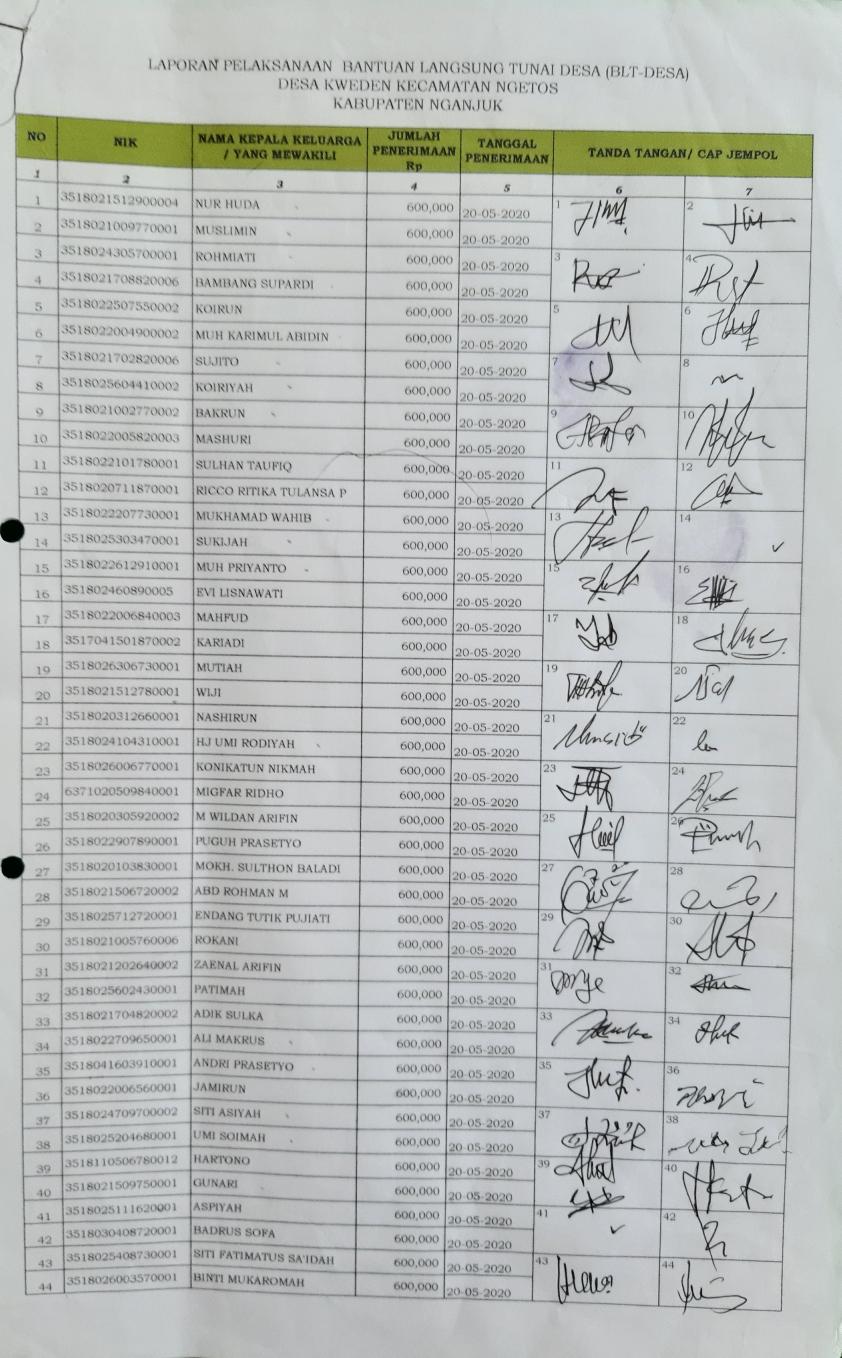 LAPORAN PELAKSANAAN BANTUAN LANGSUNG TUNAI DESA (BLT-DESA)
DESA KWEDEN KECAMATAN NGETOS
KABUPATEN NGANJUK
NO NIK NAMA KEPALA KELUARGA / YANG MEWAKILI JUMLAH PENERIMAAN Rp TANGGAL PENERIMAAN TANDA TANGAN/ CAP JEMPOL
1 2 3 4 5 6 7
1 3518021512900004 NUR HUDA 600,000 20-05-2020 1
2 3518021009770001 MUSLIMIN 600,000 20-05-2020 2
3 3518024305700001 ROHMIATI 600,000 20-05-2020 3
4 3518021708820006 BAMBANG SUPARDI 600,000 20-05-2020 4
5 3518022507550002 KOIRUN 600,000 20-05-2020 5
6 3518022004900002 MUH KARIMUL ABIDIN 600,000 20-05-2020 6
7 3518021702820006 SUJITO 600,000 20-05-2020 7
8 3518025604410002 KOIRIYAH 600,000 20-05-2020 8
9 3518021002770002 BAKRUN 600,000 20-05-2020 9
10 3518022005820003 MASHURI 600,000 20-05-2020 10
11 3518022101780001 SULHAN TAUFIQ 600,000 20-05-2020 11
12 3518020711870001 RICCO RITIKA TULANSA P 600,000 20-05-2020 12
13 3518022207730001 MUKHAMAD WAHIB 600,000 20-05-2020 13
14 3518025303470001 SUKIJAH 600,000 20-05-2020 14
15 3518022612910001 MUH PRIYANTO 600,000 20-05-2020 15
16 351802460890005 EVI LISNAWATI 600,000 20-05-2020 16
17 3518022006840003 MAHFUD 600,000 20-05-2020 17
18 3517041501870002 KARIADI 600,000 20-05-2020 18
19 3518026306730001 MUTIAH 600,000 20-05-2020 19
20 3518021512780001 WIJI 600,000 20-05-2020 20
21 3518020312660001 NASHIRUN 600,000 20-05-2020 21
22 3518024104310001 HJ UMI RODIYAH 600,000 20-05-2020 22
23 3518026006770001 KONIKATUN NIKMAH 600,000 20-05-2020 23
24 6371020509840001 MIGFAR RIDHO 600,000 20-05-2020 24
25 3518020305920002 M WILDAN ARIFIN 600,000 20-05-2020 25
26 3518022907890001 PUGUH PRASETYO 600,000 20-05-2020 26
27 3518020103830001 MOKH. SULTHON BALADI 600,000 20-05-2020 27
28 3518021506720002 ABD ROHMAN M 600,000 20-05-2020 28
29 3518025712720001 ENDANG TUTIK PUJIATI 600,000 20-05-2020 29
30 3518021005760006 ROKANI 600,000 20-05-2020 30
31 3518021202640002 ZAENAL ARIFIN 600,000 20-05-2020 31
32 3518025602430001 PATIMAH 600,000 20-05-2020 32
33 3518021704820002 ADIK SULKA 600,000 20-05-2020 33
34 3518022709650001 ALI MAKRUS 600,000 20-05-2020 34
35 3518041603910001 ANDRI PRASETYO 600,000 20-05-2020 35
36 3518022006560001 JAMIRUN 600,000 20-05-2020 36
37 3518024709700002 SITI ASIYAH 600,000 20-05-2020 37
38 3518025204680001 UMI SOIMAH 600,000 20-05-2020 38
39 3518110506780012 HARTONO 600,000 20-05-2020 39
40 3518021509750001 GUNARI 600,000 20-05-2020 40
41 3518025111620001 ASPIYAH 600,000 20-05-2020 41
42 3518030408720001 BADRUS SOFA 600,000 20-05-2020 42
43 3518025408730001 SITI FATIMATUS SA'IDAH 600,000 20-05-2020 43
44 3518026003570001 BINTI MUKAROMAH 600,000 20-05-2020 44